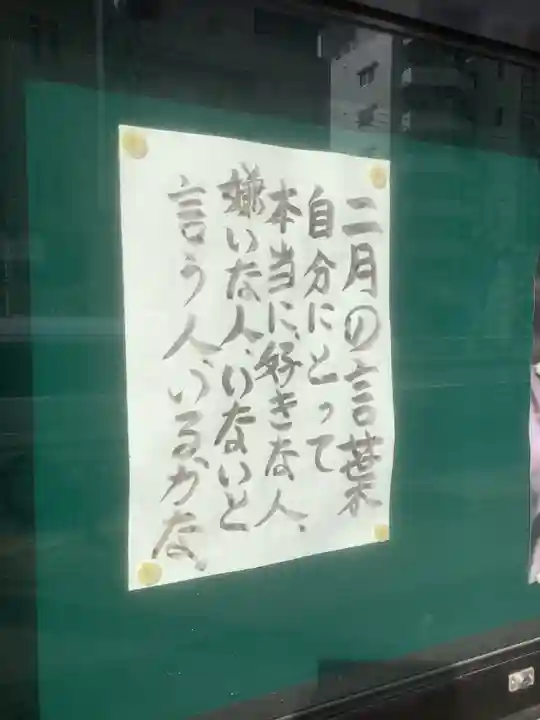 二月の言葉
自分にとって
本当に、好きな人、
嫌いな人、いないと
言う人、いるかな、